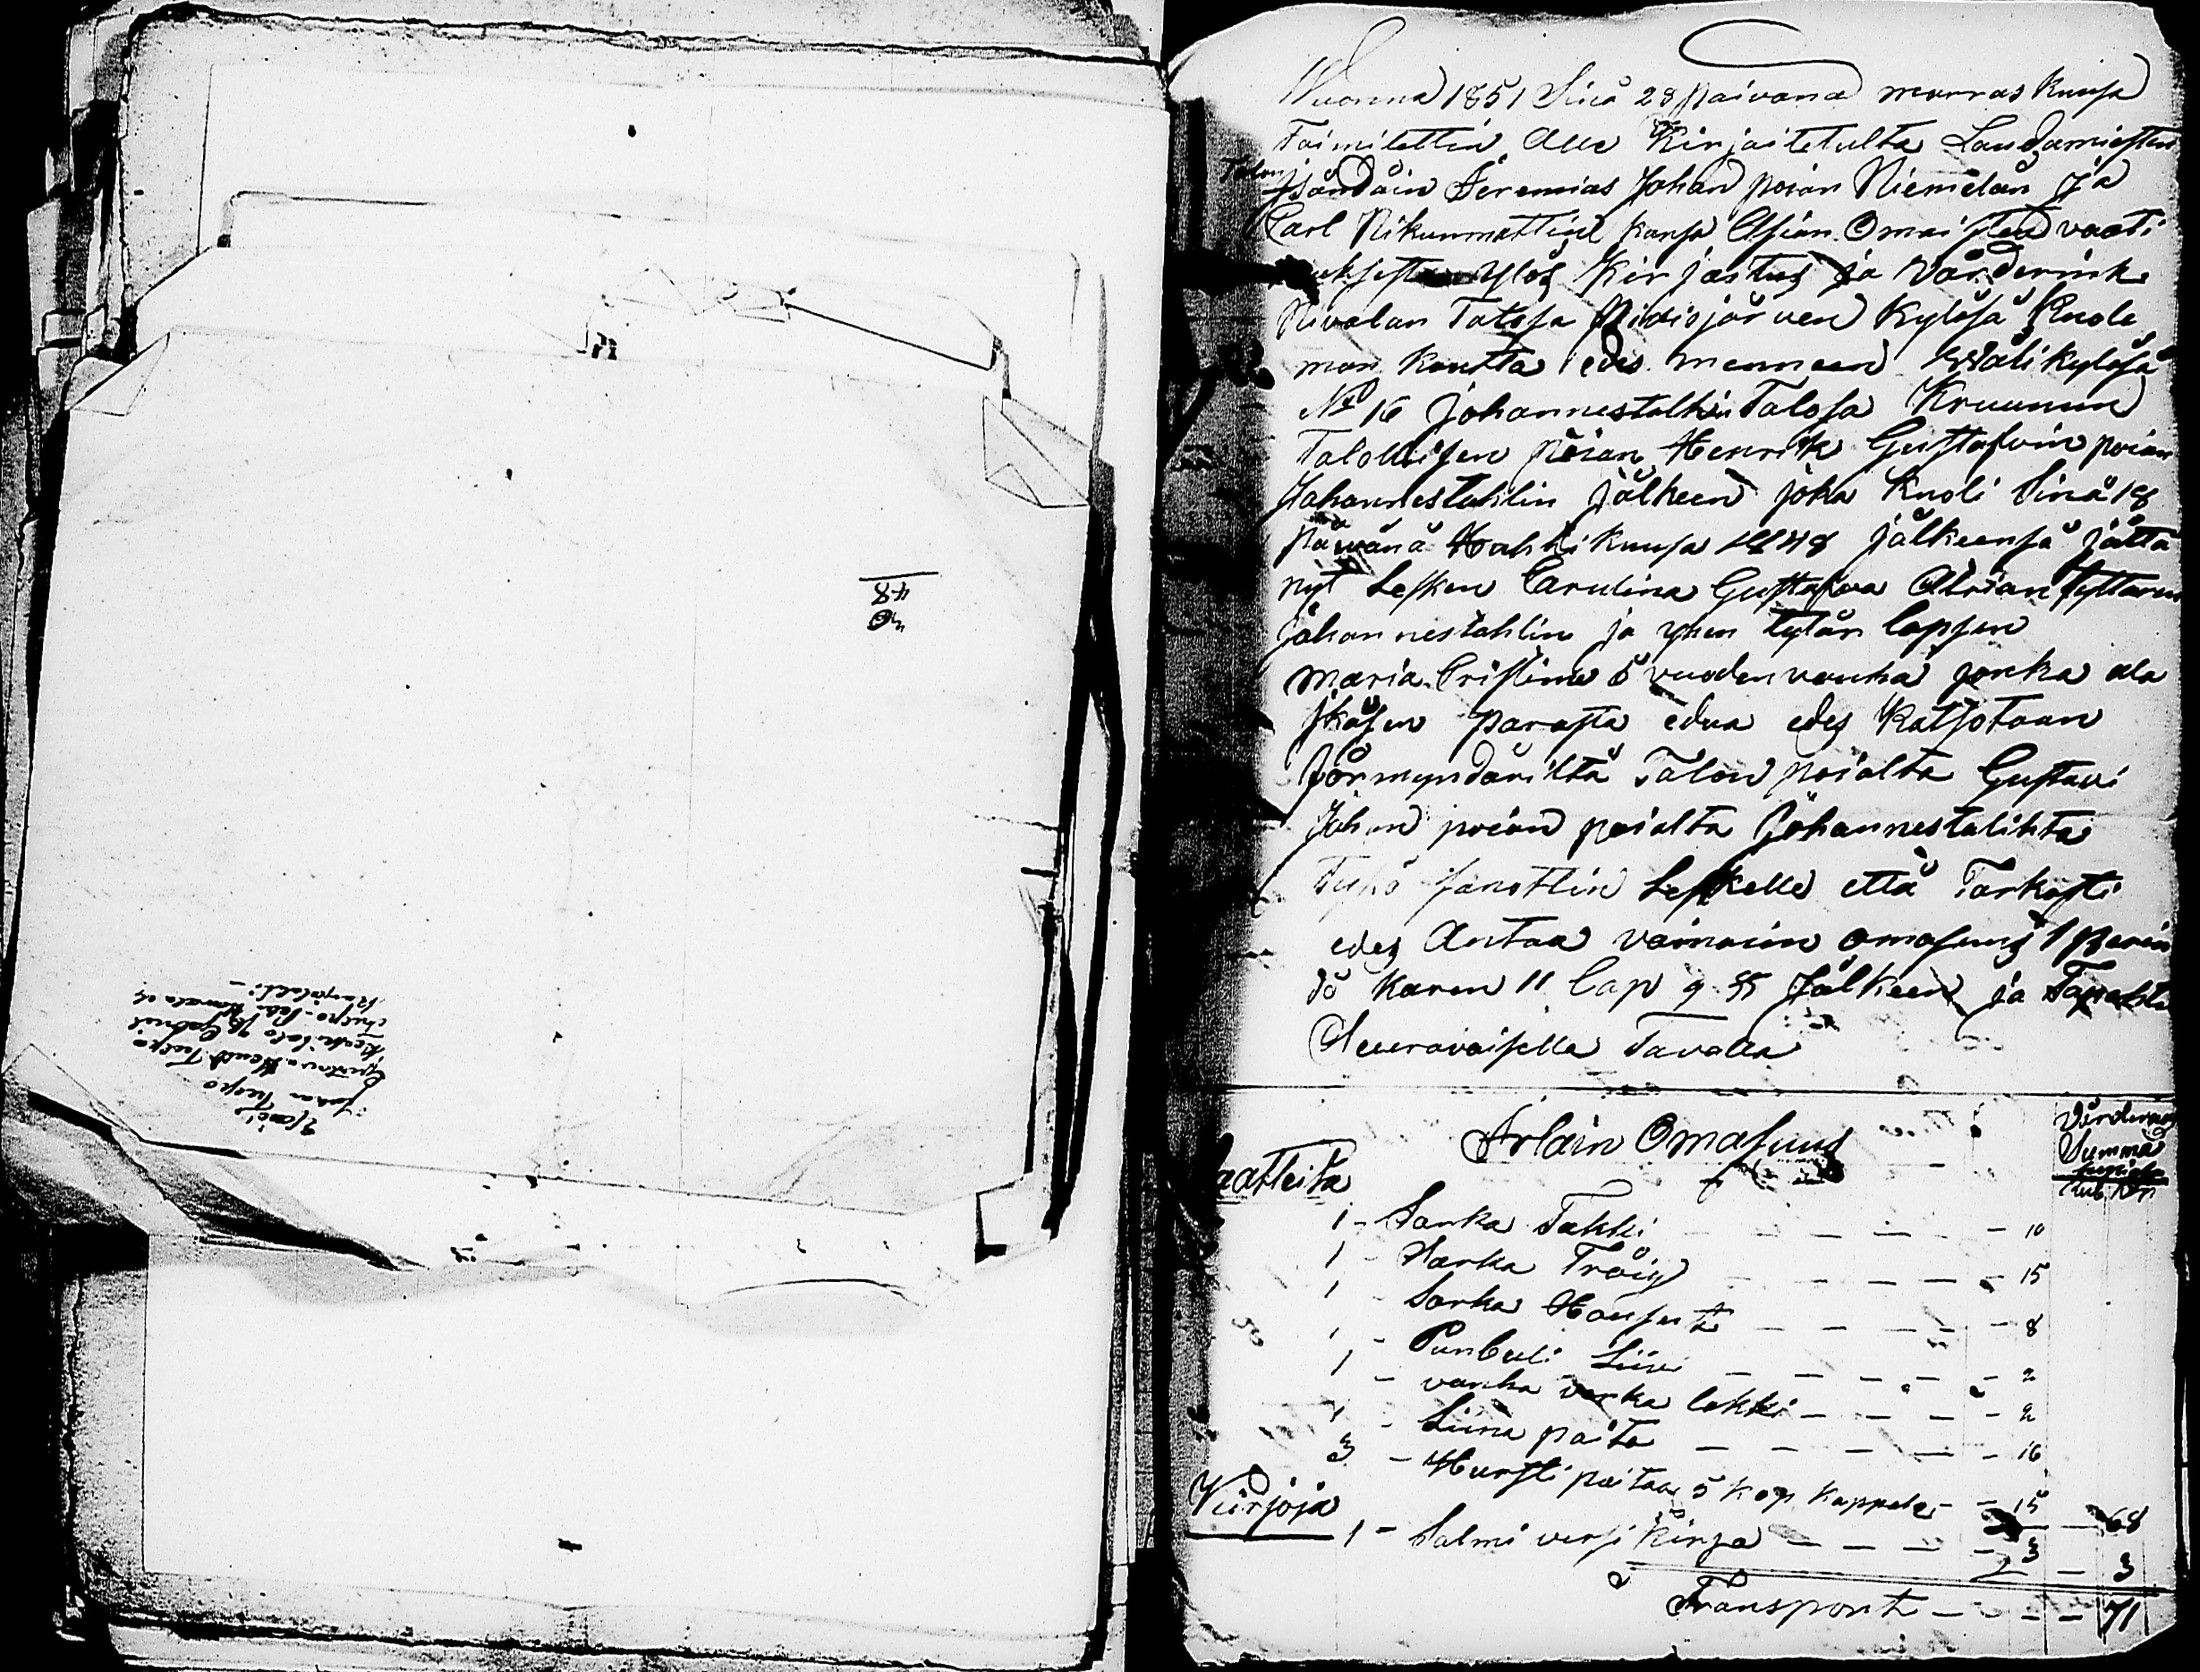 30
48
Johan Turpo
Wuonna 1851 Sinä 28 päivänä marras kuusa
Toimitettin Alle Kirjoitetulta Laudamiesten
Talon
Isändäin Jeremias Johan poian Niemelän ja
Carl Nikunmattigil kansa Asian Omaisten vaati
uksesta Ylös Kirjastus ja Värderink
Nivalan Talosa Pidisjärven Kyläsä Kuole
man kautta edes menneen Wälikyläsä
No 16 Johannestalhin Talosa Kruunun
Talollisen poian Henrik Gustafvin poian
Johannestahlin jälkeen joka Kuoli Sinä 18
päivänä Huhti kuusa 1848 jälkeensä jättä
nyt Lesken Carulina Gustafva Adrian tyttären
Johannestahlin ja yhen tytär lapsen
Maria Cristina 5 vuoden vanha jonka ala
Jkäsen parasta edua edes Katsotaan
Förmyndäriltä Talon poialta Gustavi
Johan poian poialta Johannestalihta
Tykö sanottin Leskelle että Tarkasti
edes Antaa vainaan omasuus Perin
dö kaaren 11 Cap 9 §§ Jälkeen ja Tapahtu
Seuravaisella Tavalla
Irlain Omasuus
Värderings
Summa
hopiasa
Rub Kop
Vaatteita
1 - Sarka Takki - - - - 10
1 - Sarka Tröijy - - - - 15
1 - Sarka Housut - - - - 8
1 - Punbuli Liivi - - - - 2
1 - vanha verka lakki - - - - 2
1 - Liina paita - - - - 16
3 - Hursti paitaa 5 kop kappale - - 15 - 68
Kirjoja
1 - Salmi versi kirja - - - - 3 - 3
Transport - - - - 71